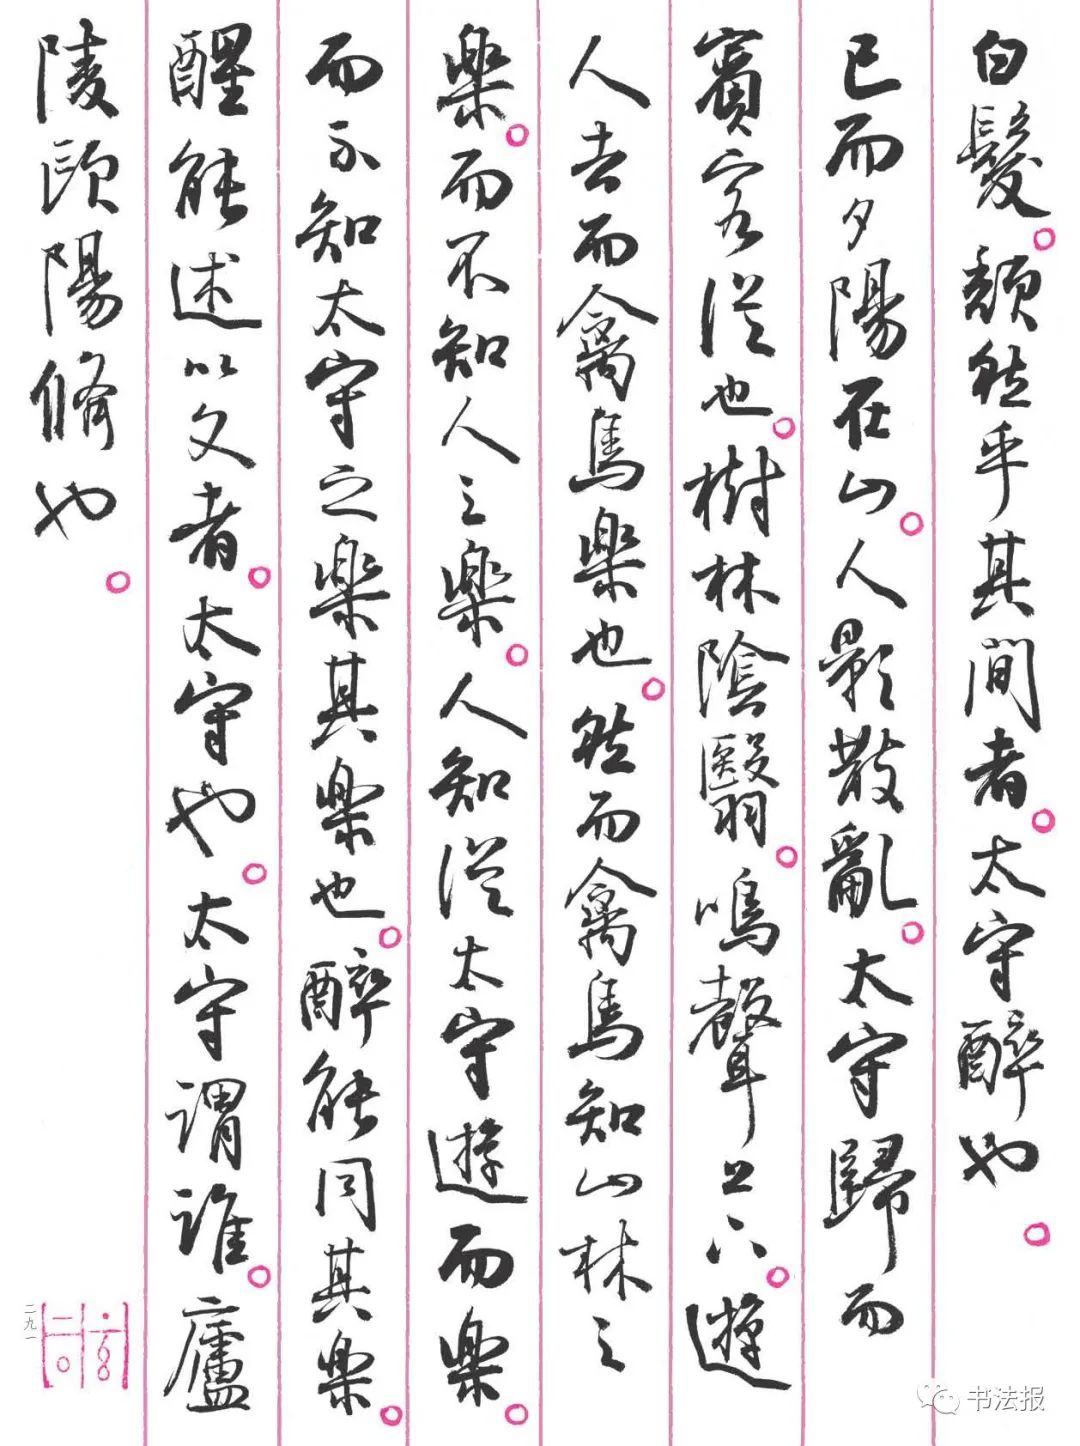 白髮。頹然乎其間者。太守醉也。
已而夕陽在山。人影散亂。太守歸而
賓客從也。樹林陰翳。鳴聲上下。遊
人去而禽鳥樂也。然而禽鳥知山林之
樂。而不知人之樂。人知從太守遊而樂。
而不知太守之樂其樂也。醉能同其樂。
醒能述以文者。太守也。太守謂誰。廬
陵歐陽脩也。
二九一
书法报